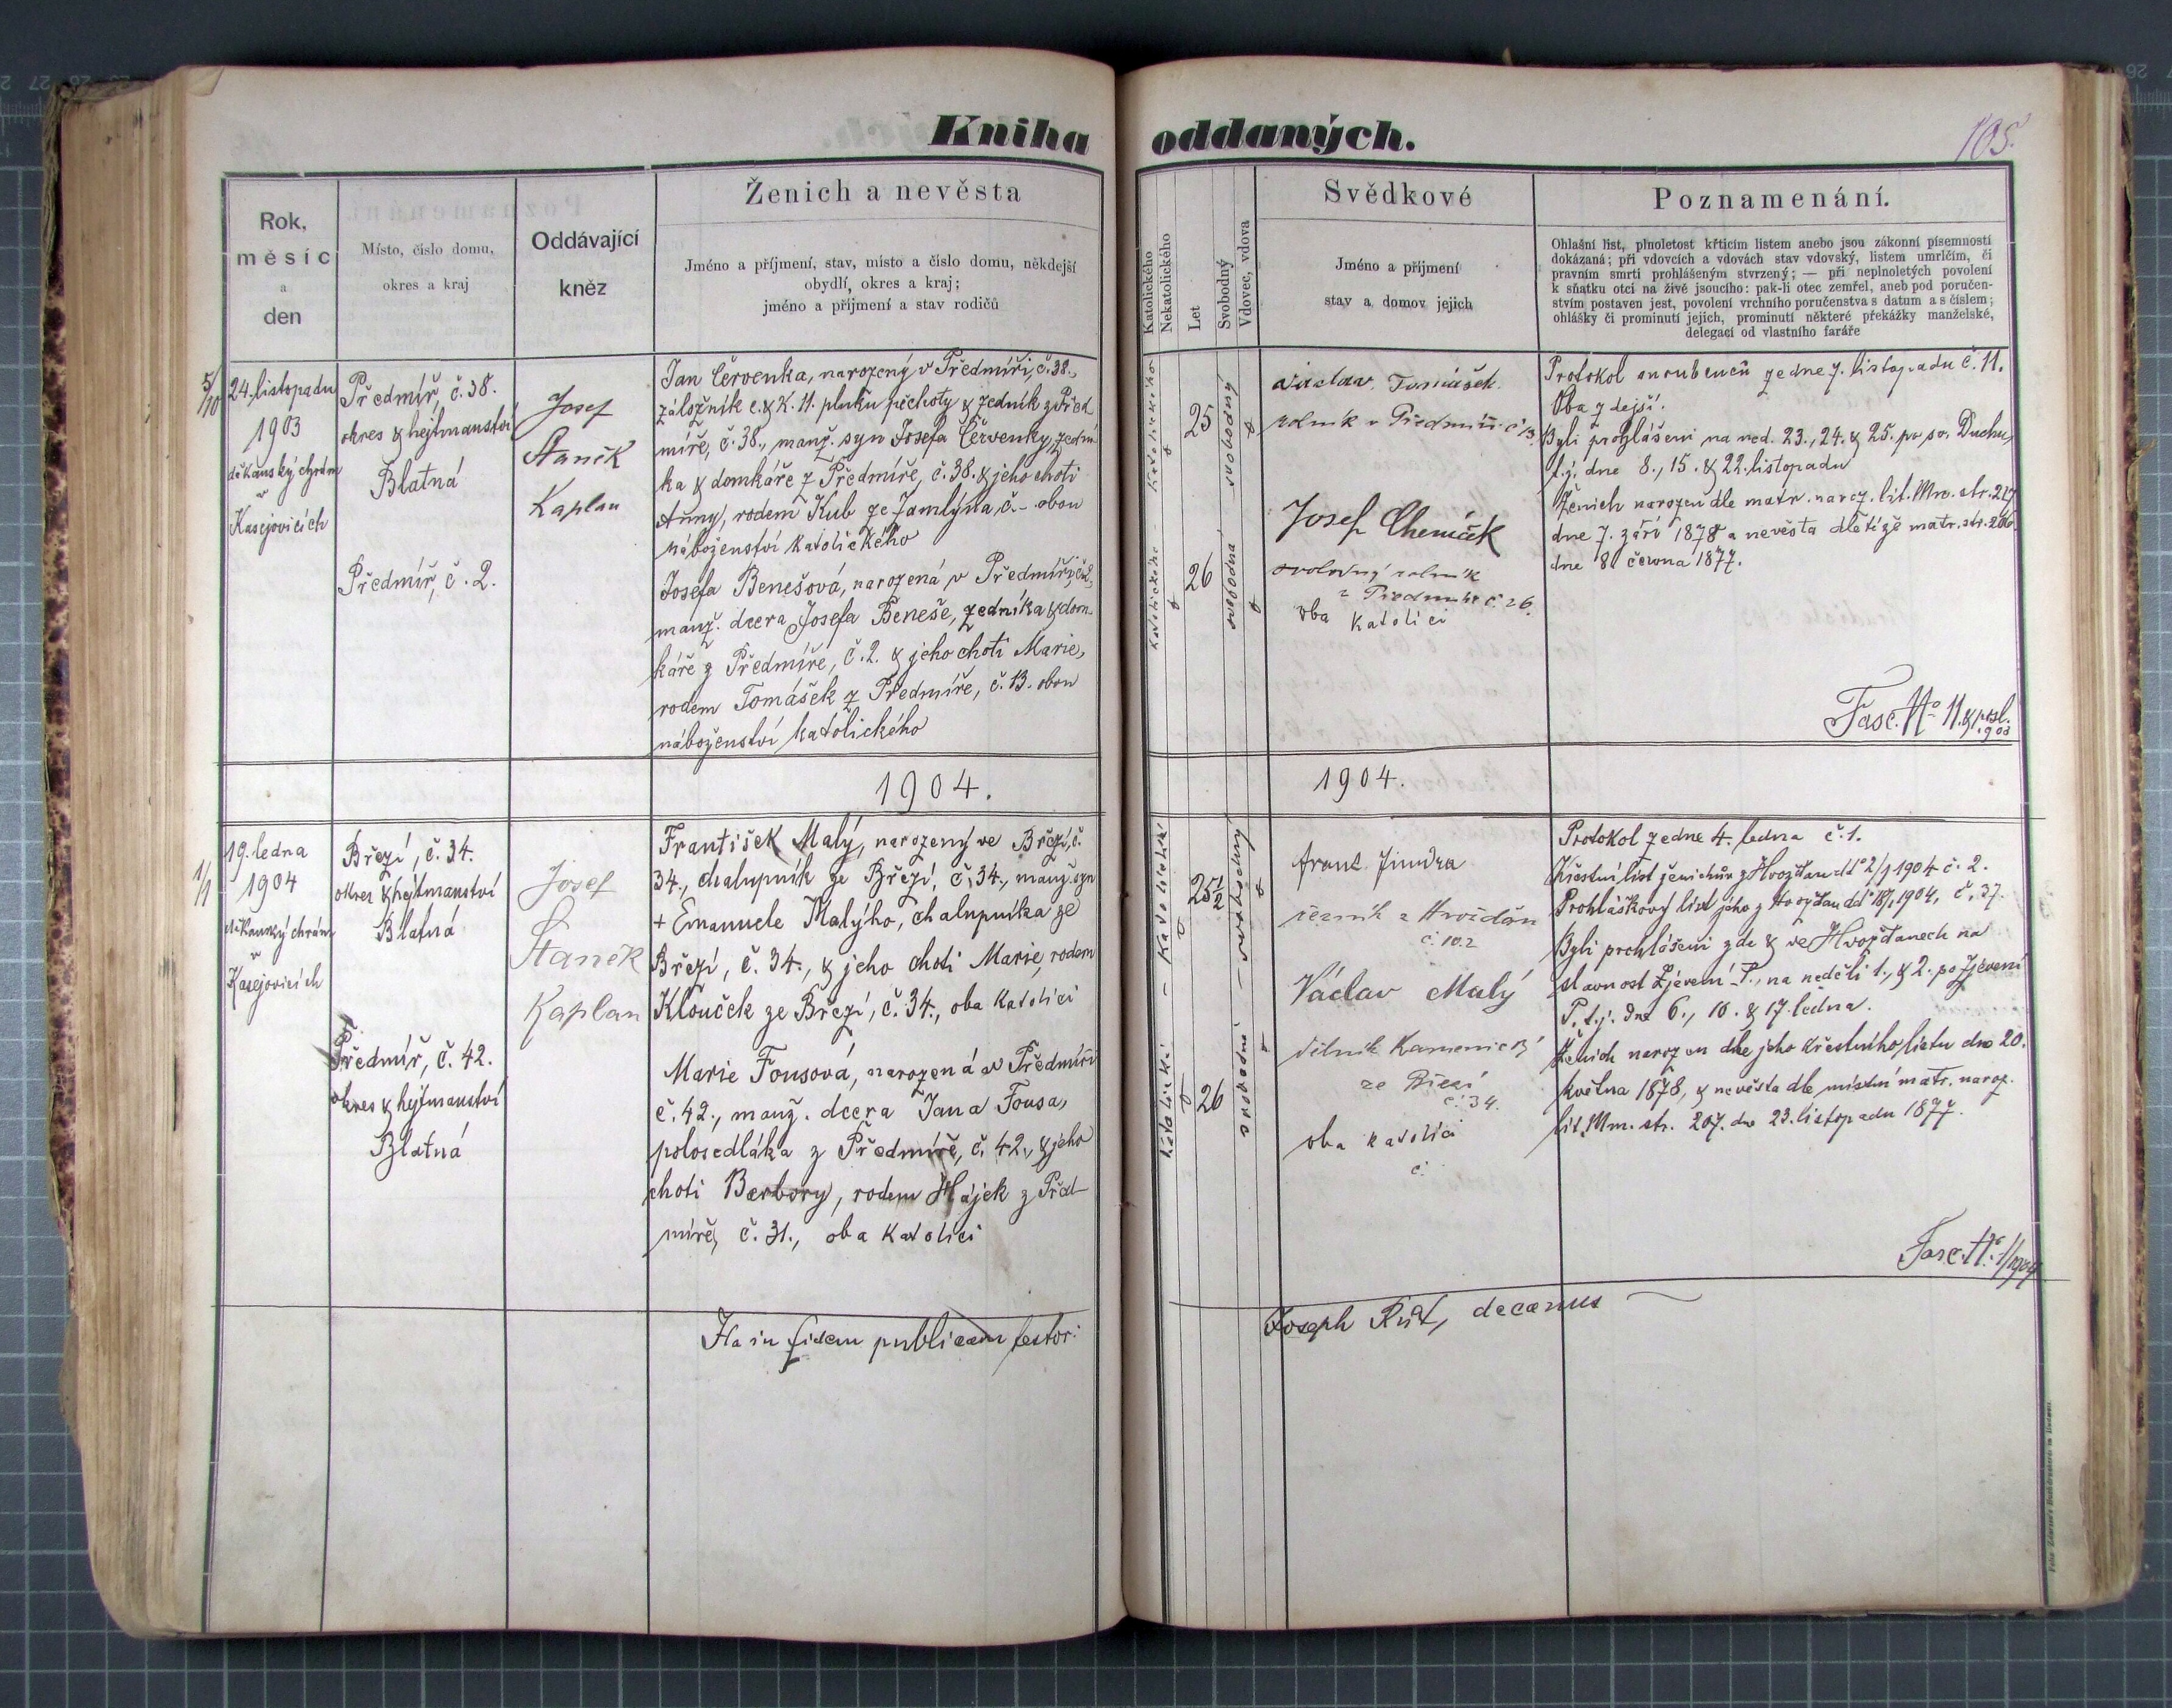 Kniha oddaných.
105.
Rok,
měsíc
a
den
Místo, číslo domu,
okres a kraj
Oddávající
kněz
Ženich a nevěsta
Jméno a příjmení, stav, místo a číslo domu, někdejší
obydlí, okres a kraj;
jméno a příjmení a stav rodičů
Katolického
Nekatolického
Let
Svobodný
Vdovec, vdova
Svědkové
Jméno a příjmení
stav a domov jejich
Poznamenání.
Ohlašní list, plnoletost křticím listem anebo jsou zákonní písemností
dokázaná; při vdovcích a vdovách stav vdovský, listem umrlčím, či
pravním smrti prohlášeným stvrzený; — při neplnoletých povolení
k sňatku otci na živě jsoucího: pak-li otec zemřel, aneb pod poručen-
stvím postaven jest, povolení vrchního poručenstva s datum a s číslem;
ohlášky či prominutí jejich, prominutí některé překážky manželské,
delegací od vlastního faráře
5/10
24. listopadu
1903
děkanský chrám
v
Kasejovicích
Předmíř, č. 38.
okres & hejtmanství
Blatná
Předmíř, č. 2.
Josef
Staněk
Kaplan
Jan Červenka, narozený v Předmíři, č. 38.,
záložník c. & k. 11. pluku pěchoty & zedník z Před
míře, č. 38., manž. syn Josefa Červenky, zední
ka & domkáře z Předmíře, č. 38. & jeho choti
Anny, rodem Kub ze Zamlýna, č. - obou
náboženství katolického
Josefa Benešová, narozená v Předmíři, č. 2.,
manž. dcera Josefa Beneše, zedníka & dom-
káře z Předmíře, č. 2. & jeho choti Marie,
rodem Tomášek z Předmíře, č. 13. obou
náboženství katolického
katolického
25
svobodný
katolického
26
svobodná
Václav Tomášek
rolník v Předmíři č 13
Josef Cheníček
svobodný rolník
z Předmíře č. 26.
oba katolíci
Protokol snubenců ze dne 7. listopadu č. 11.
Oba zdejší.
Byli prohlášeni na ned. 23., 24. & 25. po sv. Duchu,
t.j. dne 8., 15. & 22. listopadu
Ženich narozen dle matr. naroz. lit. Mm. str. 217
dne 7. září 1878 a nevěsta dle téže matr. str. 206
dne 8 června 1877.
Fasc. No 11. 1903
1904.
1904.
1/1
19. ledna
1904
děkanský chrám
v
Kasejovicích
Březí, č. 34.
okres & hejtmanství
Blatná
Předmíř, č. 42.
okres & hejtmanství
Blatná
Josef
Staněk
Kaplan
František Malý, narozený ve Březí, č.
34., chalupník ze Březí, č. 34., manž. syn
+ Emanuele Malýho, chalupníka ze
Březí, č. 34., & jeho choti Marie, rodem
Klouček ze Březí, č. 34., oba katolíci
Marie Fousová, narozená v Předmíři
č. 42., manž. dcera Jana Fousa,
polosedláka z Předmíře, č. 42., & jeho
choti Barbory, rodem Hájek z Před-
míře, č. 31., oba katolíci
25 1/2
svobodný
26
svobodná
Frant. Jindra
řezník z Hvožďan
č. 102
Václav Malý
dělník kamenický
ze Březí
č. 34.
oba katolíci
č.
Protokol ze dne 4. ledna č. 1.
Křestní list ženichův z Hvožďan ddo 2/1 1904 č. 2.
Prohláškový list jeho z Hvožďan ddo 18/1 1904, č. 37.
Byli prohlášeni zde & ve Hvožďanech na
slavnost Zjevení P., na neděli 1., & 2. po Zjevení
P., t.j. dne 6., 10. & 17. ledna.
Ženich narozen dle jeho křestního listu dne 20.
května 1878, & nevěsta dle místní matr. naroz.
lit. Mm. str. 207. dne 23. listopadu 1877.
Fasc. No 1/1904
Ita in fidem publicam testor:
Joseph Růt, decanus